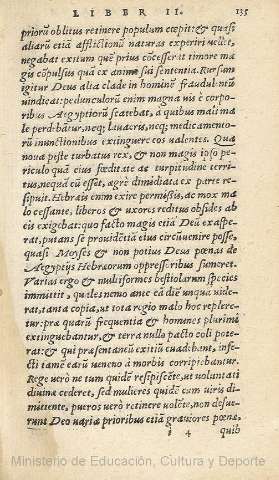 LIBER II. 135
priorũ oblitus retinere populum cœpit: & quasi
aliarũ etiã afflictionũ naturas experiri uellet,
negabat exitum quẽ prius cõcesserat timore ma
gis cõpulsus quã ex animi sui sententia. Rursum
igitur Deus alia clade in hominũ fraudulentũ
uindicat: pedunculorũ enim magna uis è corpo
ribus Aegyptiorũ scatebat, a quibus mali ma
le perdebãtur, neq; lauacris, neq; medicamento
rũ inunctionibus extinguere eos ualentes. Qua
noua peste turbatus rex, & non magis ipso peri
culo quã eius fœditate ac turpitudine territus,
neq; ut esset, ægre dimidiata ex parte re
sipuit. Hebræis enim exire permissis, ac mox ma
lo cessante, liberos & uxores reditus obsides ab
eis exigebat: quo facto magis etiã Deũ exaspe
rat, putans se prouidẽtiã eius circũuenire posse,
quasi Moyses & non potius Deus pœnas de
Aegyptijs Hebraeorum oppressoribus sumeret.
Varias ergo & multiformes bestiolarum species
immittit, quales nemo ante eã diẽ unqua uide
rat, tanta copia, ut tota regio malo hoc replere
tur: præ quarũ frequentia & homines plurimi
extinguebantur, & terra nullo pacto coli pote
rat: & qui præsentaneũ exitiũ euadebant, infe
cti tamẽ earũ ueneno à morbis corripiebantur.
Rege uerò ne tum quidẽ resipiscẽte, ut uoluntati
diuinæ cederet, sed mulieres quidẽ cum uiris di
mittente, pueros uerò retinere uolẽte, non defue
runt Deo uariæ prioribus etiã grauiores pœnæ,
i 4 quib
Ministerio de Educación, Cultura y Deporte